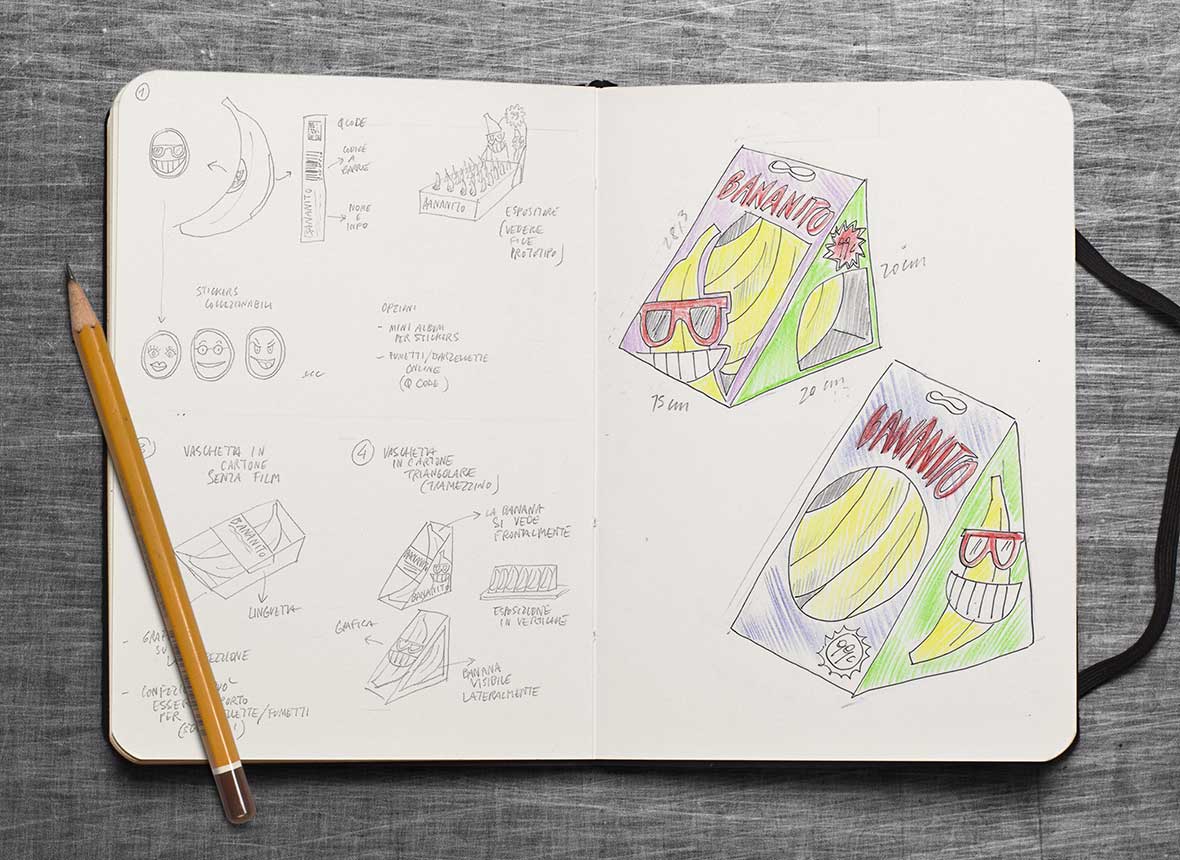 1
Q CODE
CODICE
A
BARRE
BANANITO
NOME
E
INFO
BANANITO
ESPOSITORE
(VEDERE
FILE
PROTOTIPO)
STICKERS
COLLEZIONABILI
ECC
OPZIONI
- MINI ALBUM
PER STICKERS
- FUMETTI/BARZELLETTE
ONLINE
(Q CODE)
3
VASCHETTA IN
CARTONE
SENZA FILM
BANANITO
LINGUETTA
- GRAF
SU
- CONFEZ UO'
ESSER PORTO
PER LLETTE/FUMETTI
4
VASCHETTA
IN CARTONE
TRIANGOLARE
(TRAMEZZINO)
LA BANANA
SI VEDE
FRONTALMENTE
BANANITO
BANANITO
ESPOSIZIONE
IN VERTICALE
GRAFICA
BANANA
VISIBILE
LATERALMENTE
BANANITO
99c
20 cm
20 cm
15 cm
BANANITO
99c